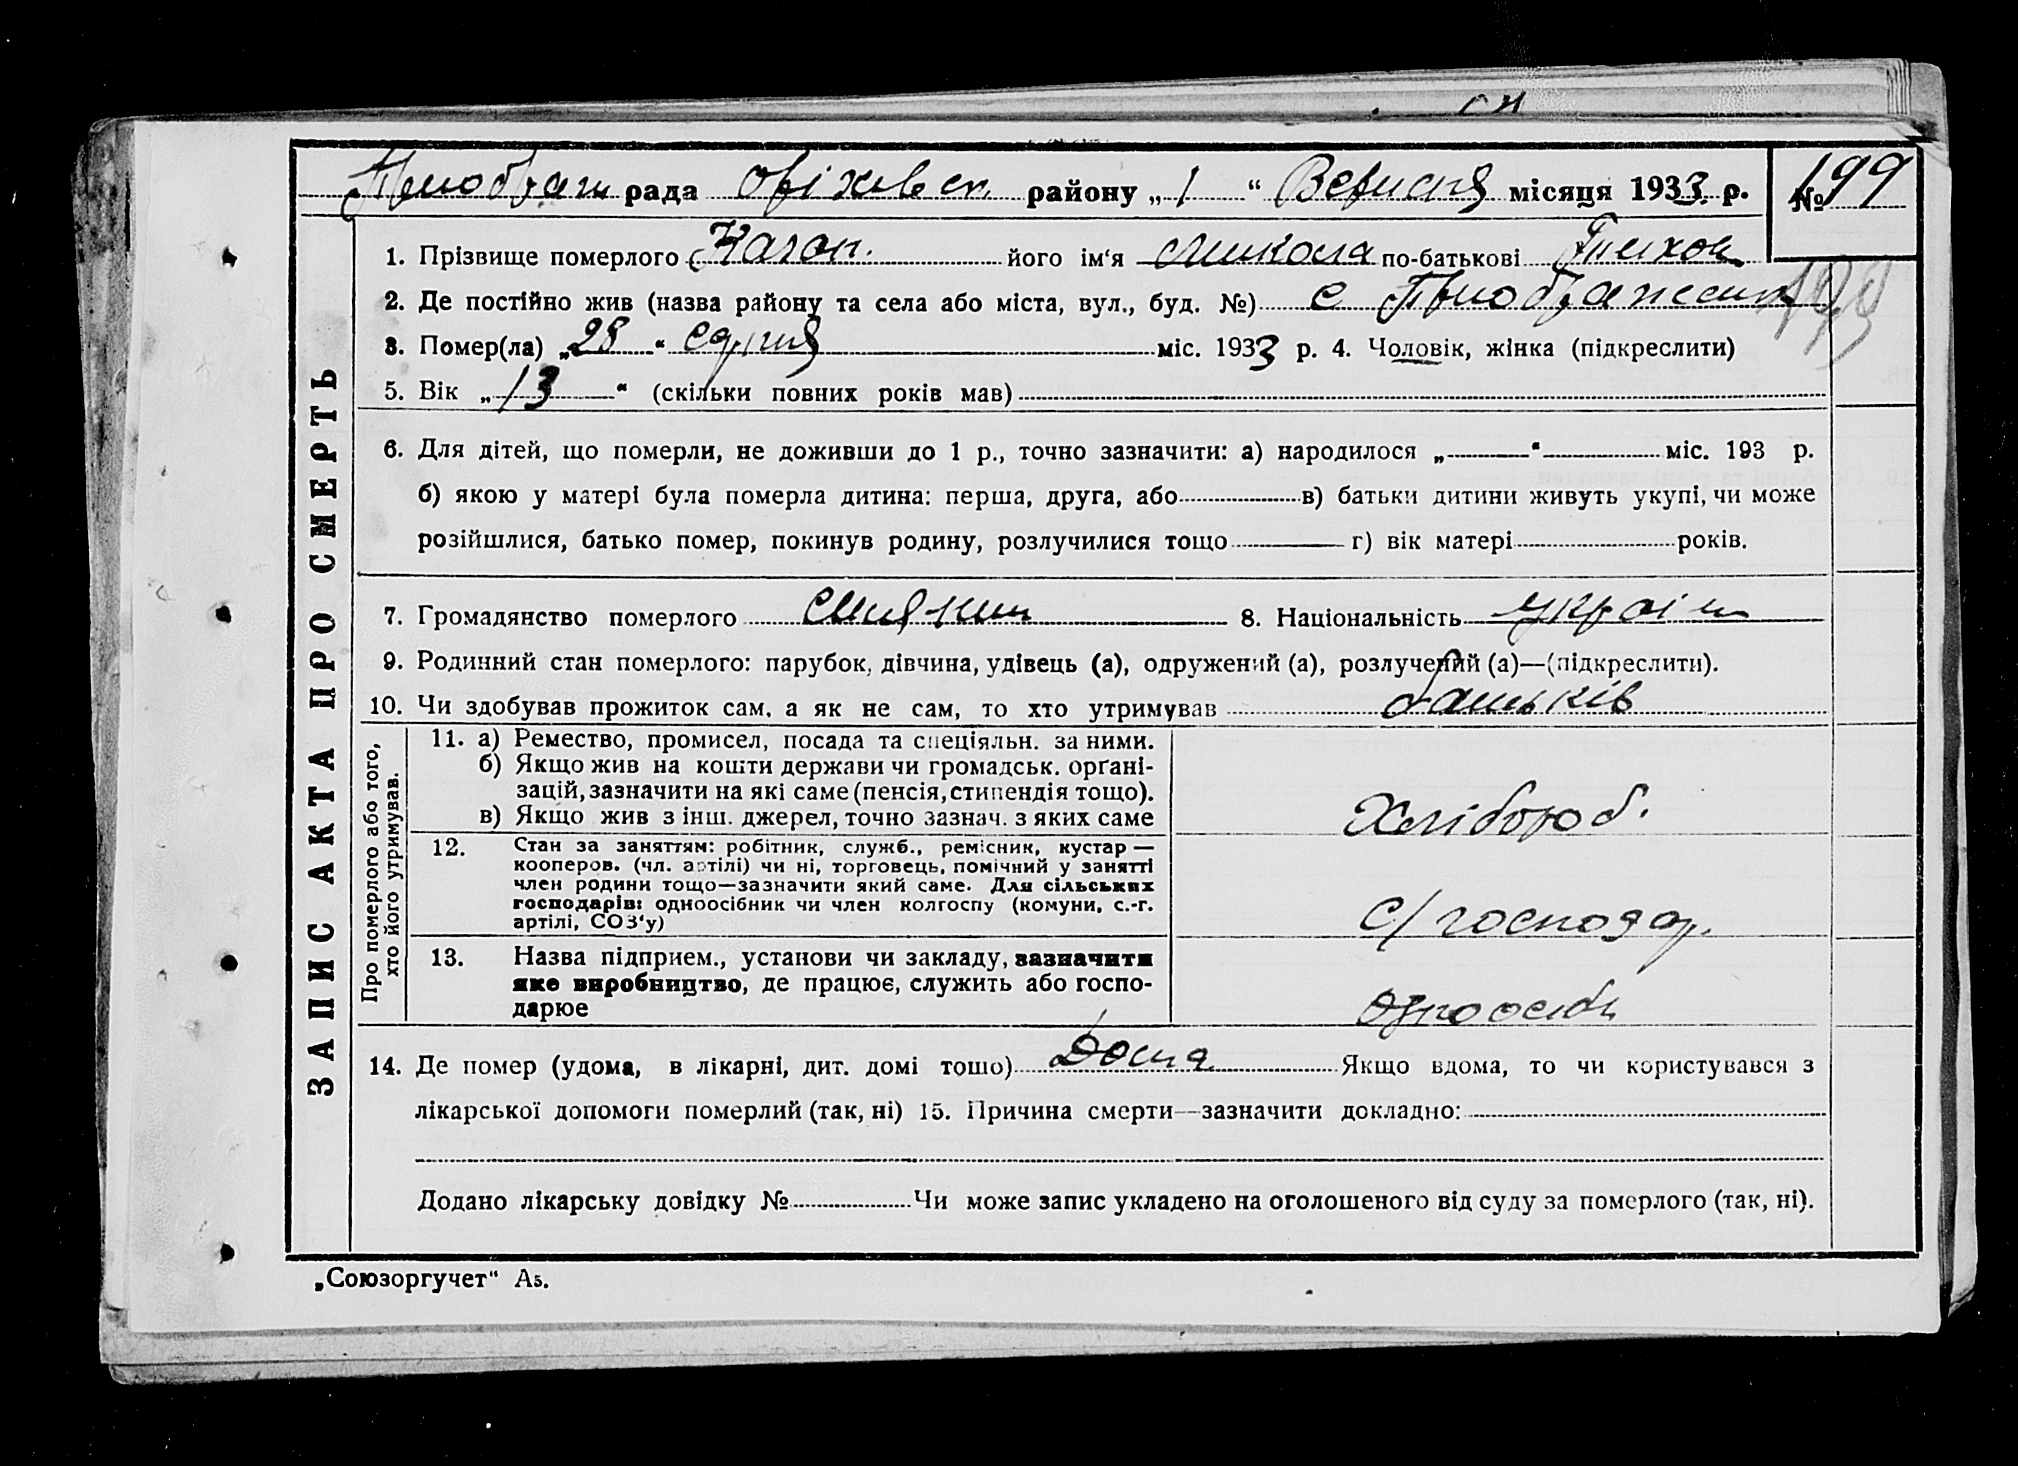 рада Оріхівск. району „1“ Вересня місяця 1933 р. № 199
1. Прізвище померлого його ім'я Микола по-батькові Тихон
2. Де постійно жив (назва району та села або міста, вул., буд. №) с
3. Помер(ла) „28“ серпня міс. 1933 р. 4. Чоловік, жінка (підкреслити)
5. Вік „13“ (скільки повних років мав)
6. Для дітей, що померли, не доживши до 1 р., точно зазначити: а) народилося „ “ міс. 193 р.
б) якою у матері була померла дитина: перша, друга, або в) батьки дитини живуть укупі, чи може
розійшлися, батько помер, покинув родину, розлучилися тощо г) вік матері років.
7. Громадянство померлого 8. Національність україн
9. Родинний стан померлого: парубок, дівчина, удівець (а), одружений (а), розлучений (а)—(підкреслити).
10. Чи здобував прожиток сам, а як не сам, то хто утримував батьків
11. а) Ремество, промисел, посада та спеціяльн. за ними.
б) Якщо жив на кошти держави чи громадськ. орґані-
зацій, зазначити на які саме (пенсія, стипендія тощо).
в) Якщо жив з інш. джерел, точно зазнач. з яких саме
Хлібороб.
12. Стан за заняттям: робітник, служб., ремісник, кустар —
кооперов. (чл. артілі) чи ні, торговець, помічний у занятті
член родини тощо—зазначити який саме. Для сільських
господарів: одноосібник чи член колгоспу (комуни, с.-г.
артілі, СОЗ'у)
с/господар.
13. Назва підприєм., установи чи закладу, зазначити
яке виробництво, де працює, служить або госпо-
дарює
одноосібн
14. Де помер (удома, в лікарні, дит. домі тощо) Дома Якщо вдома, то чи користувався з
лікарської допомоги померлий (так, ні) 15. Причина смерти—зазначити докладно:
Додано лікарську довідку № Чи може запис укладено на оголошеного від суду за померлого (так, ні).
ЗАПИС АКТА ПРО СМЕРТЬ
Про померлого або того,
хто його утримував.
„Союзоргучет“ А5.